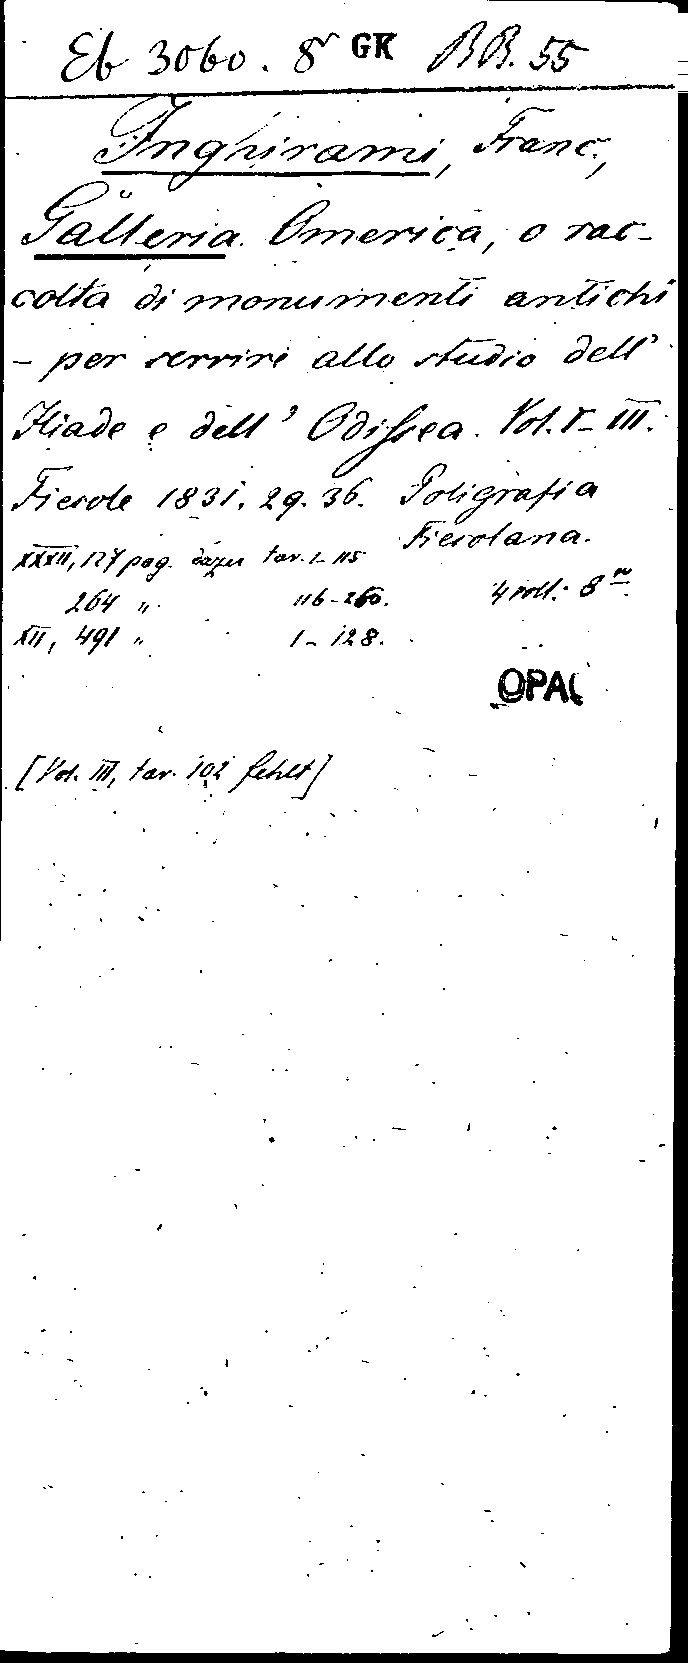 Eb 3060. 8° GK BB. 55
Inghirami, Franc.,
Galleria Omerica, o rac-
colta di monumenti antichi
- per servire allo studio dell'
Iliade e dell' Odissea. Vol. I-III.
Fiesole 1831. 29. 36. Poligrafia
Fiesolana.
XXXII, 127 pag. dazu tav. 1-115
264 " 116-260. 4 voll. 8vo
XII, 491 " 1-128.
OPAC
[Vol. III, tav. 102 fehlt]